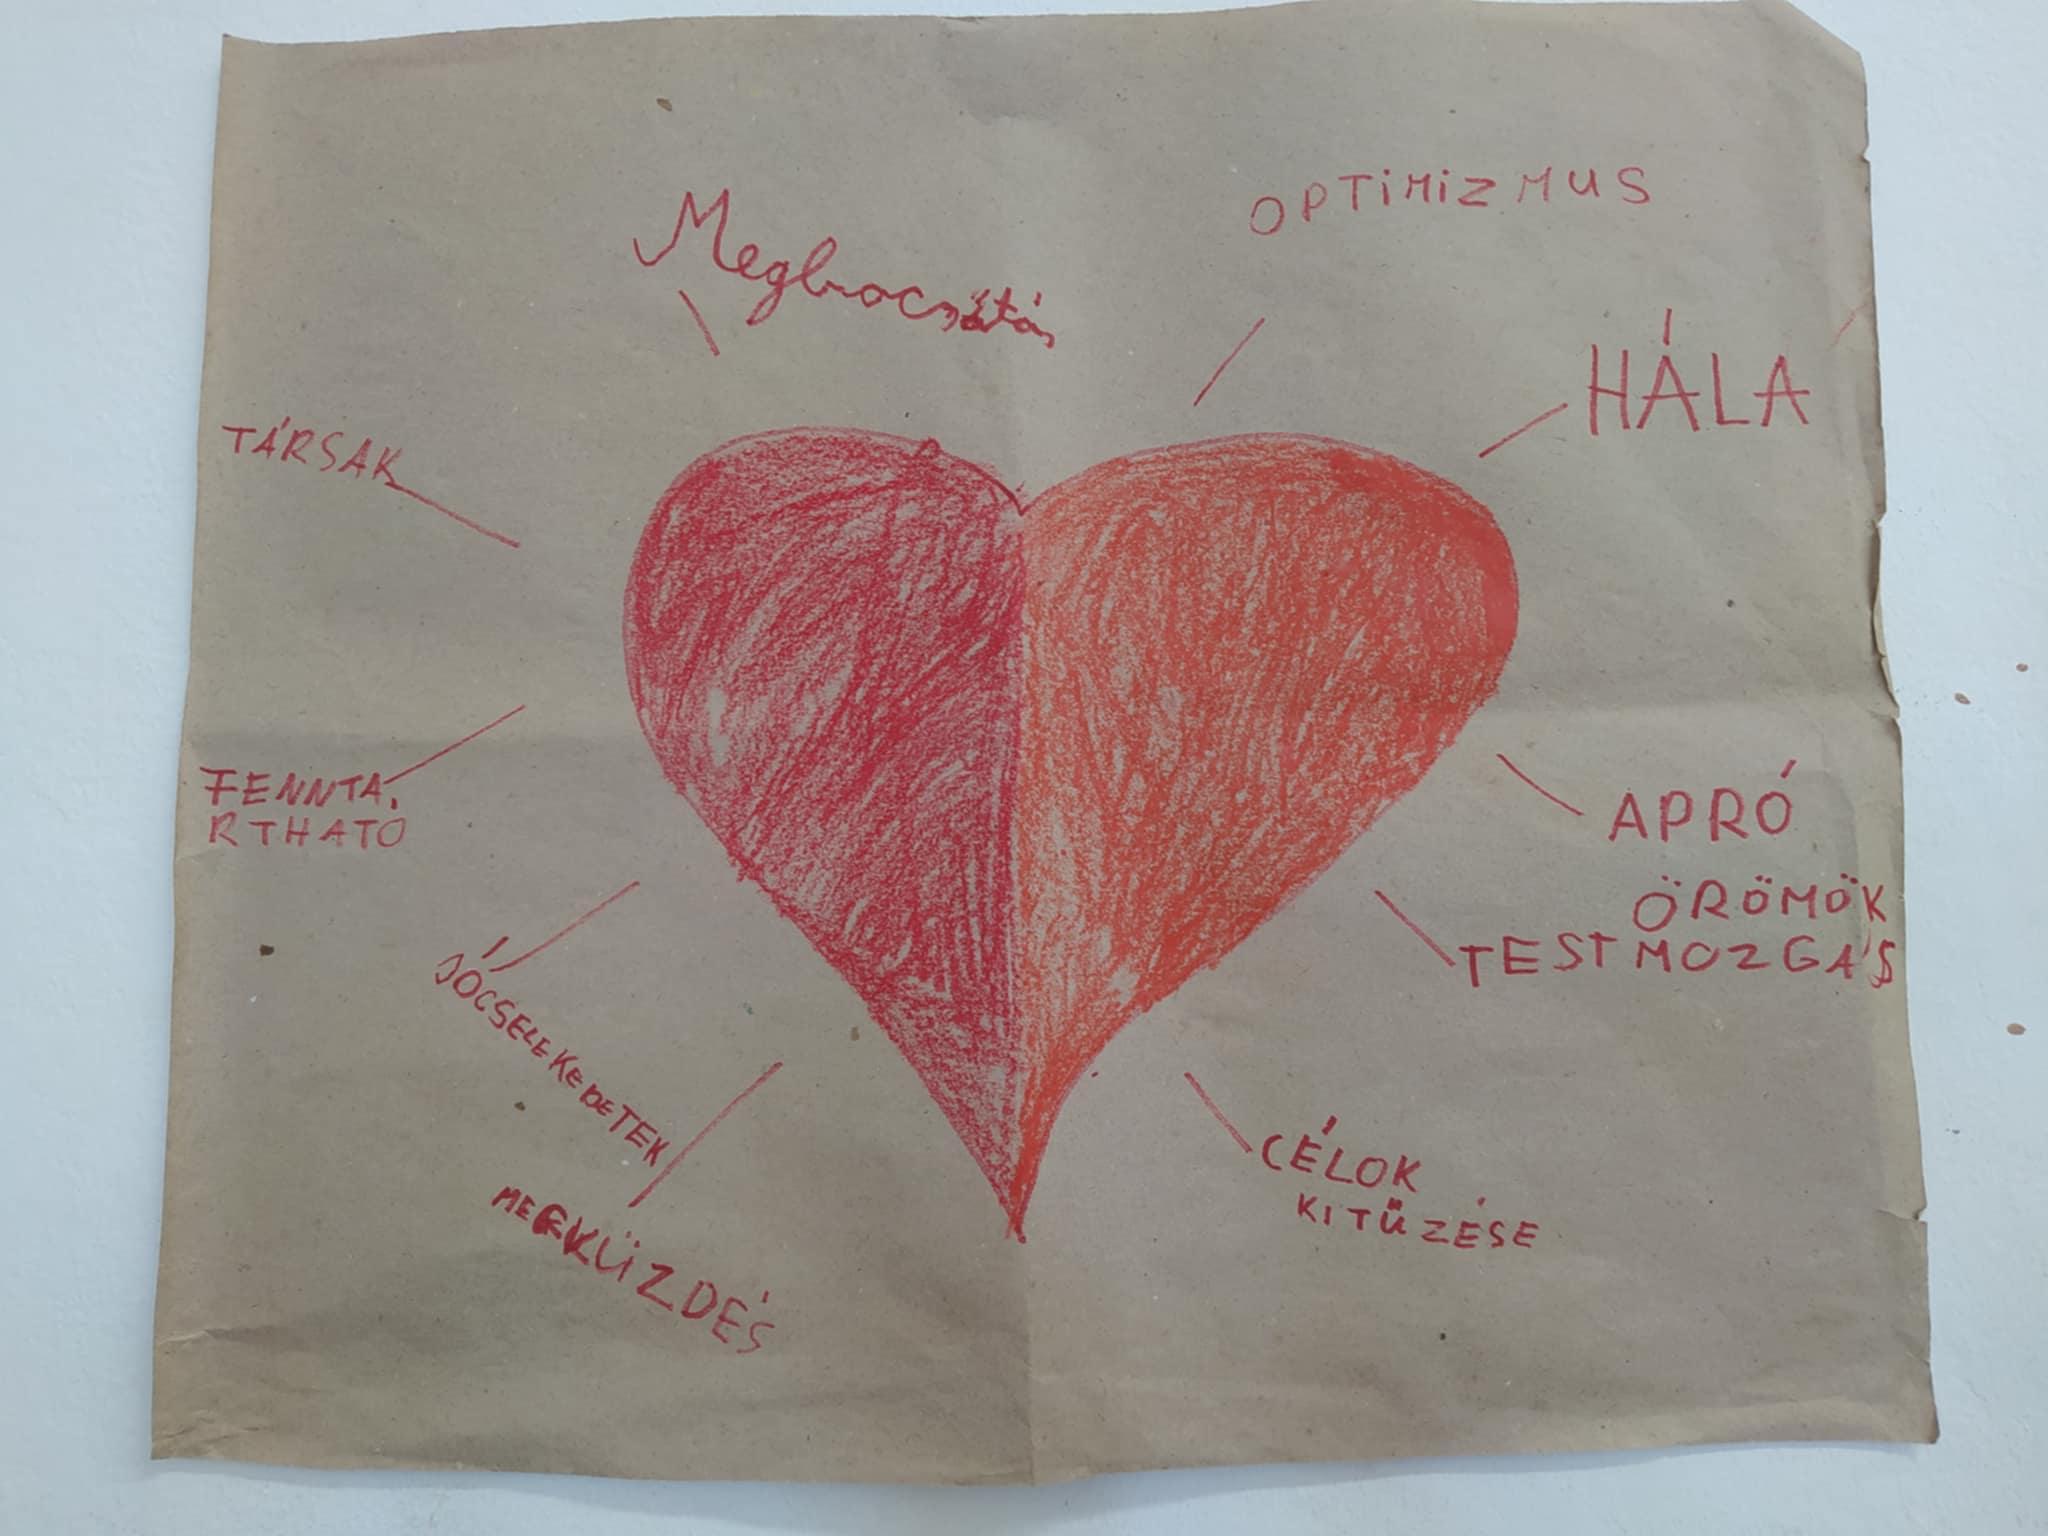 OPTiMiZMUS
Megbocsátás
HÁLA
TÁRSAK
FENNTA,
RTHATO
APRÓ
ÖRÖMÖK
TESTMOZGÁS
JÓCSELEKEDETEK
CÉLOK
KITŰZÉSE
MEGKÜZDÉS